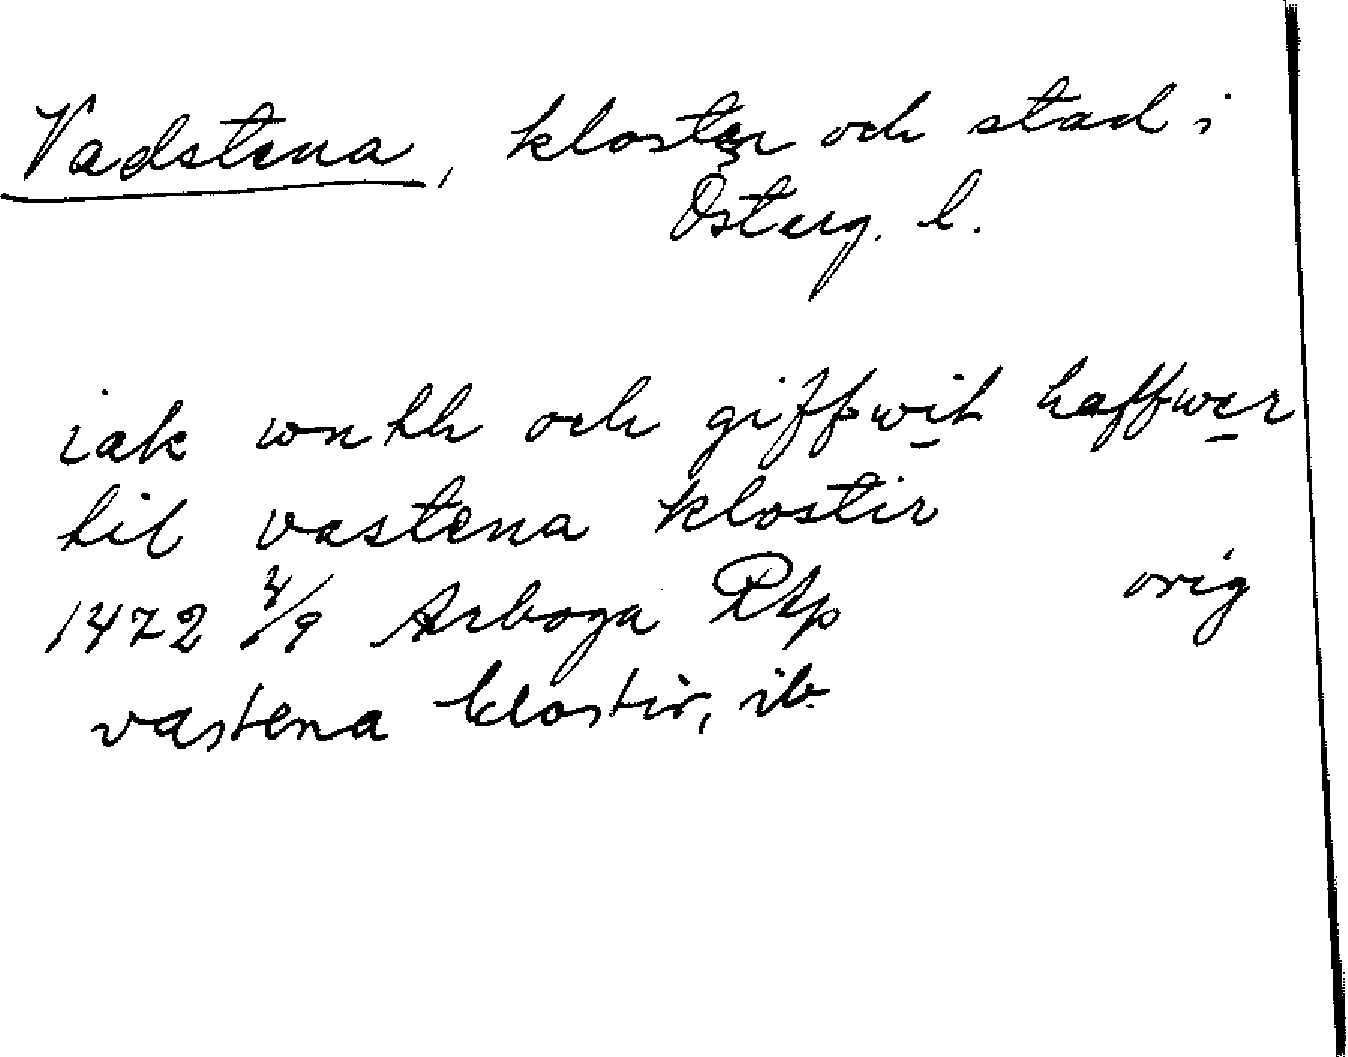 Vadstena, kloster och stad i
Österg. l.
iak wnth och giffwit haffwer
til vastena klostir
1472 4/9 Arboga Rtp orig
vastena klostir, ib.